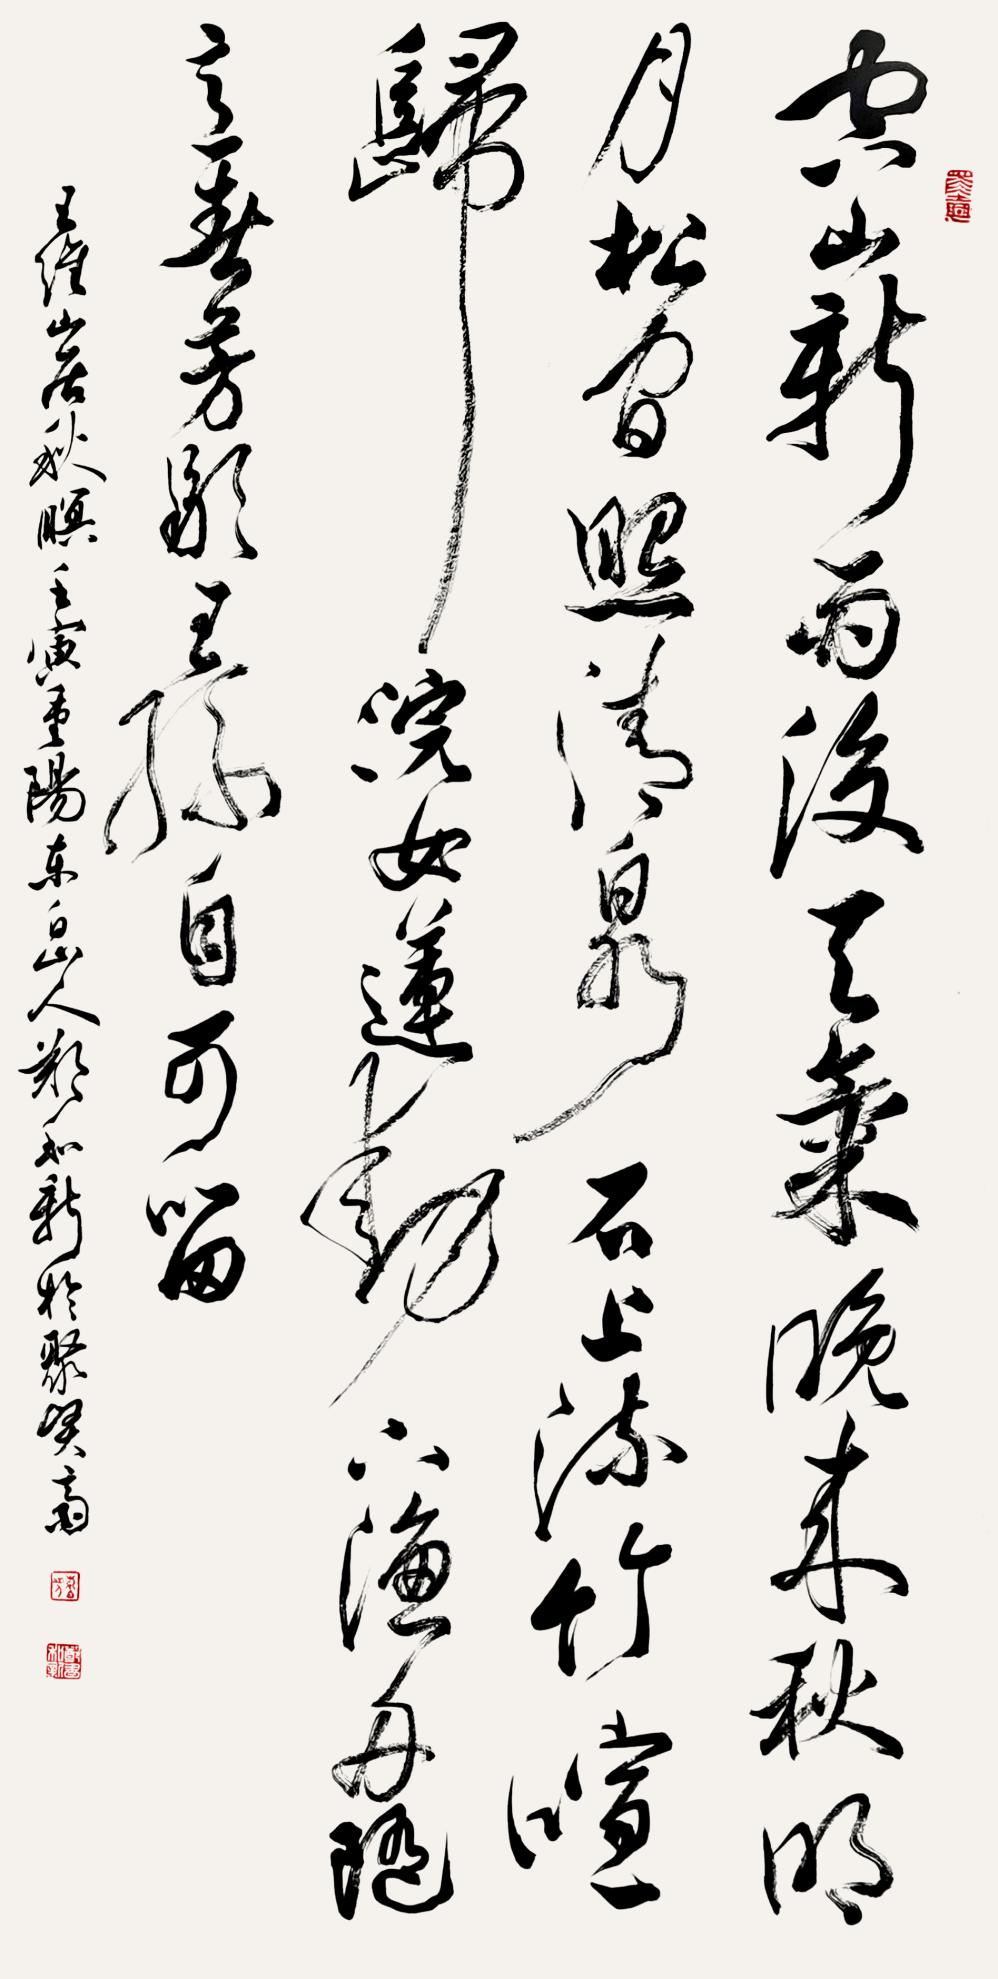 空山新雨後天氣晚来秋明
月松間照清泉石上流竹喧
歸浣女蓮動下漁舟隨
意春芳歇王孫自可留
王維山居秋暝壬寅重陽东白山人鄭和新於聚賢齋